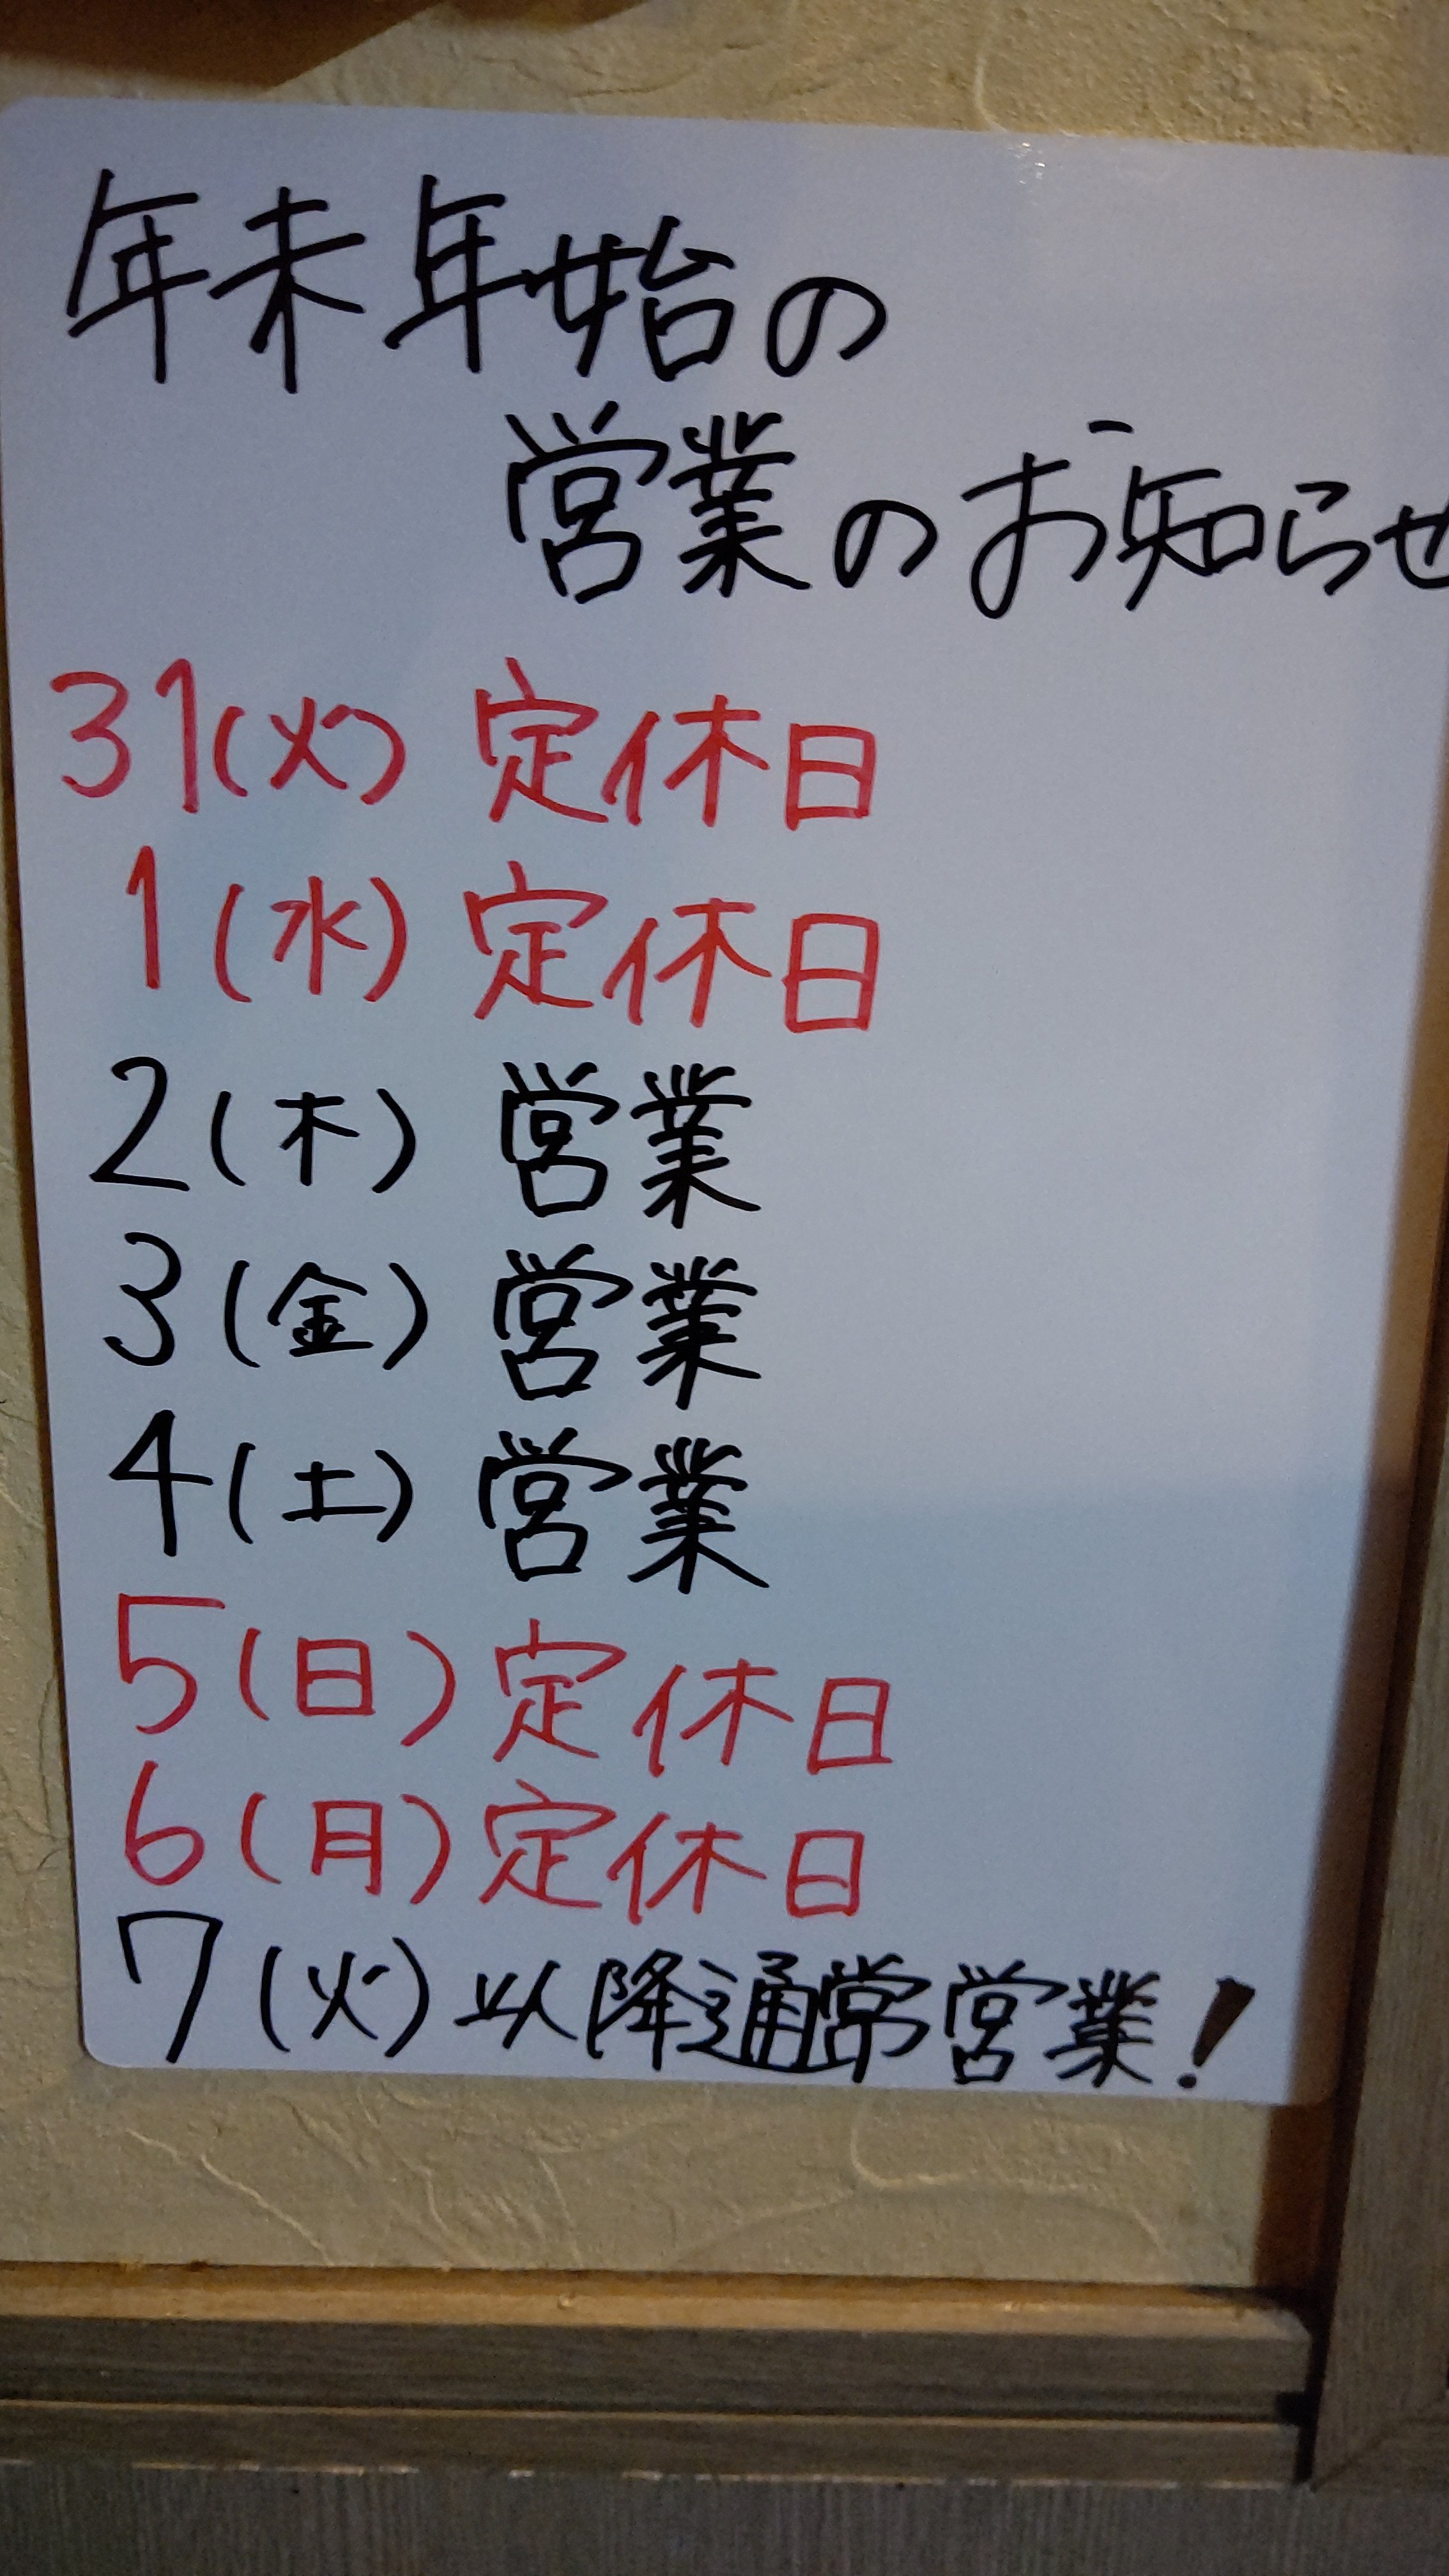 年末年始の
営業のお知らせ
31(火) 定休日
1(水) 定休日
2(木) 営業
3(金) 営業
4(土) 営業
5(日) 定休日
6(月) 定休日
7(火) 以降通常営業!